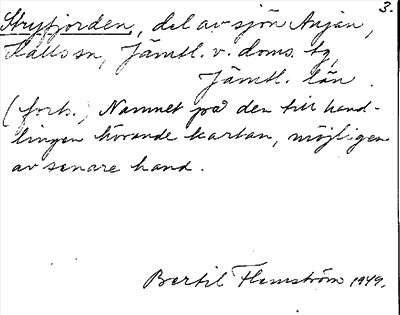 3.
Strytjorden, del av sjön Anjan,
Kalls sn, Jämtl. v. doms. tg,
Jämtl. län.
(forts.) Namnet på den till hand-
lingen hörande kartan, möjligen
av senare hand.
Bertil Flemström 1949.